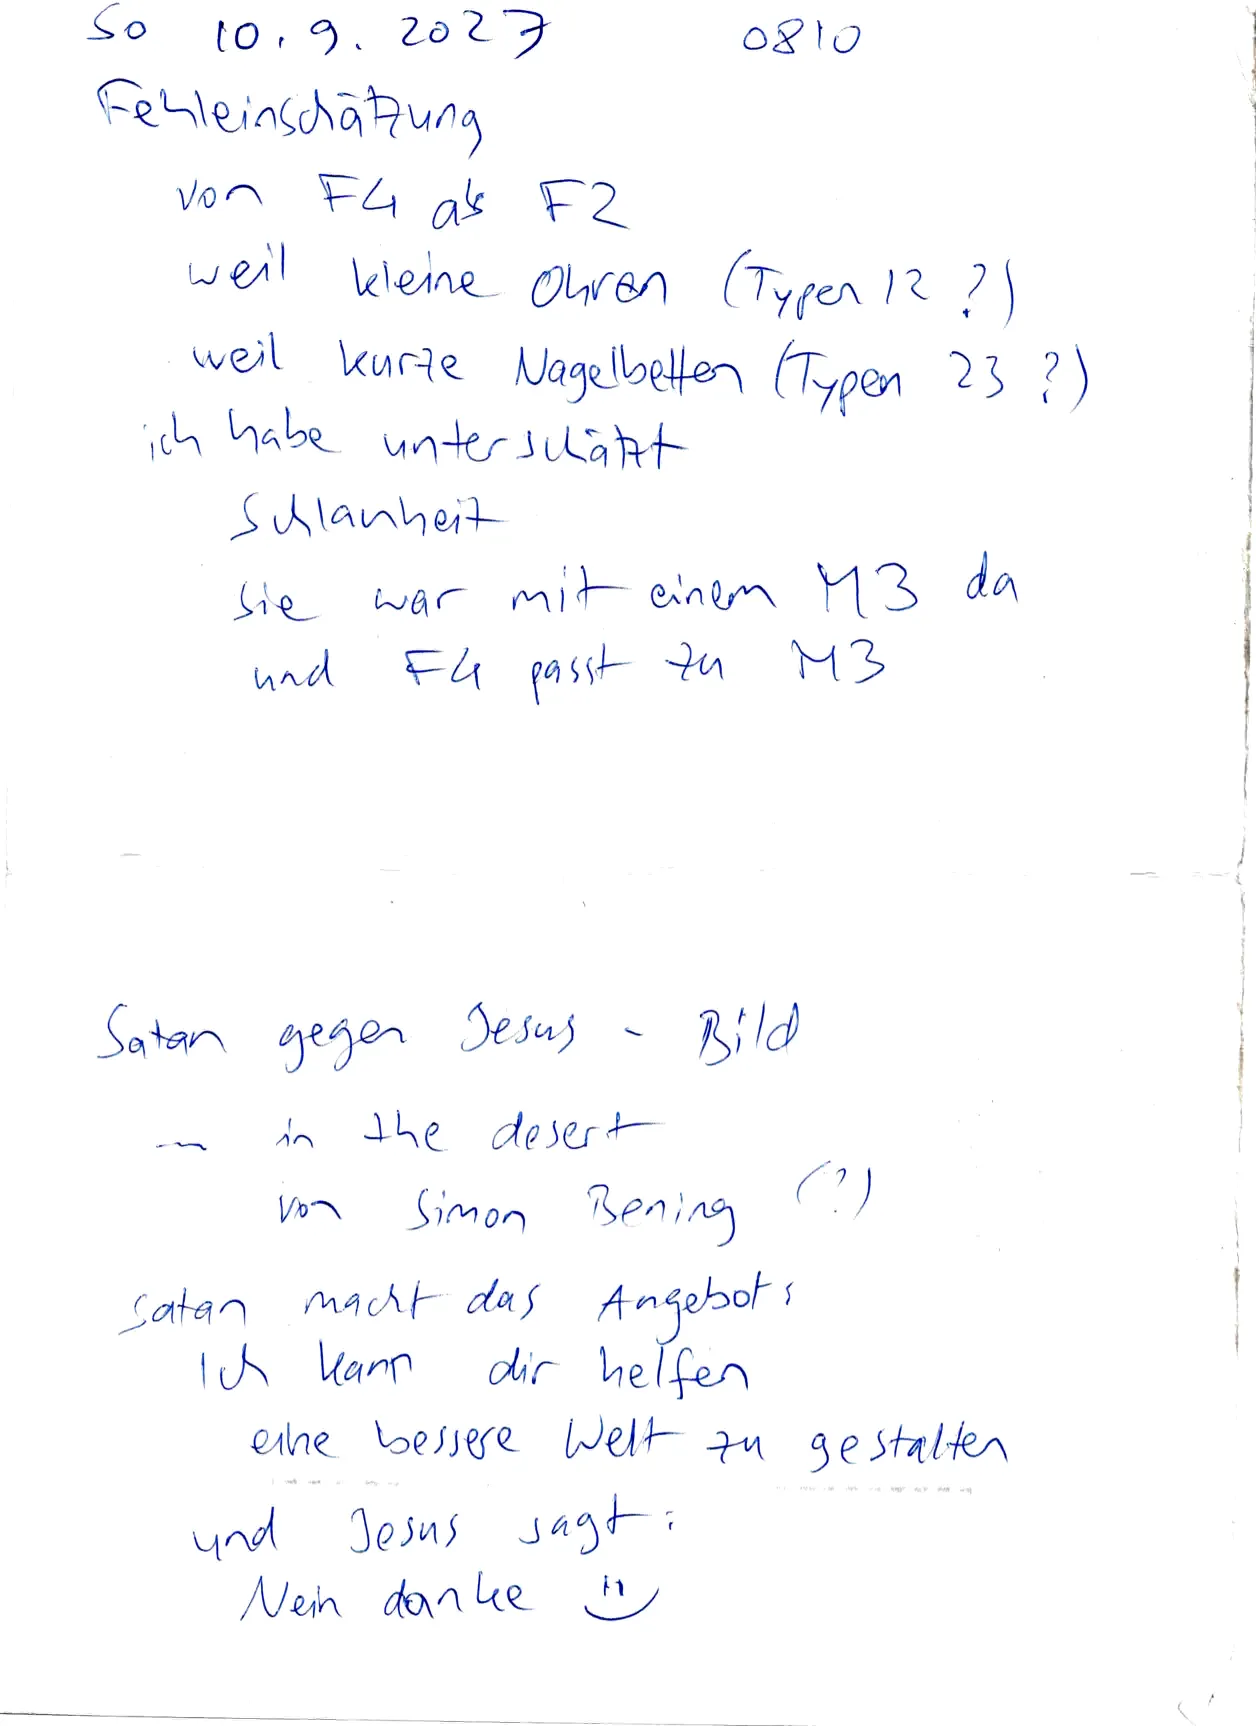 So 10.9.2023 0810
Fehleinschätzung
von F4 als F2
weil kleine Ohren (Typen 12 ?)
weil kurze Nagelbetten (Typen 23 ?)
ich habe unterschätzt
Schlauheit
sie war mit einem M3 da
und F4 passt zu M3
Satan gegen Jesus - Bild
— in the desert
von Simon Bening (?)
satan macht das Angebot:
Ich kann dir helfen
eine bessere Welt zu gestalten
und Jesus sagt:
Nein danke